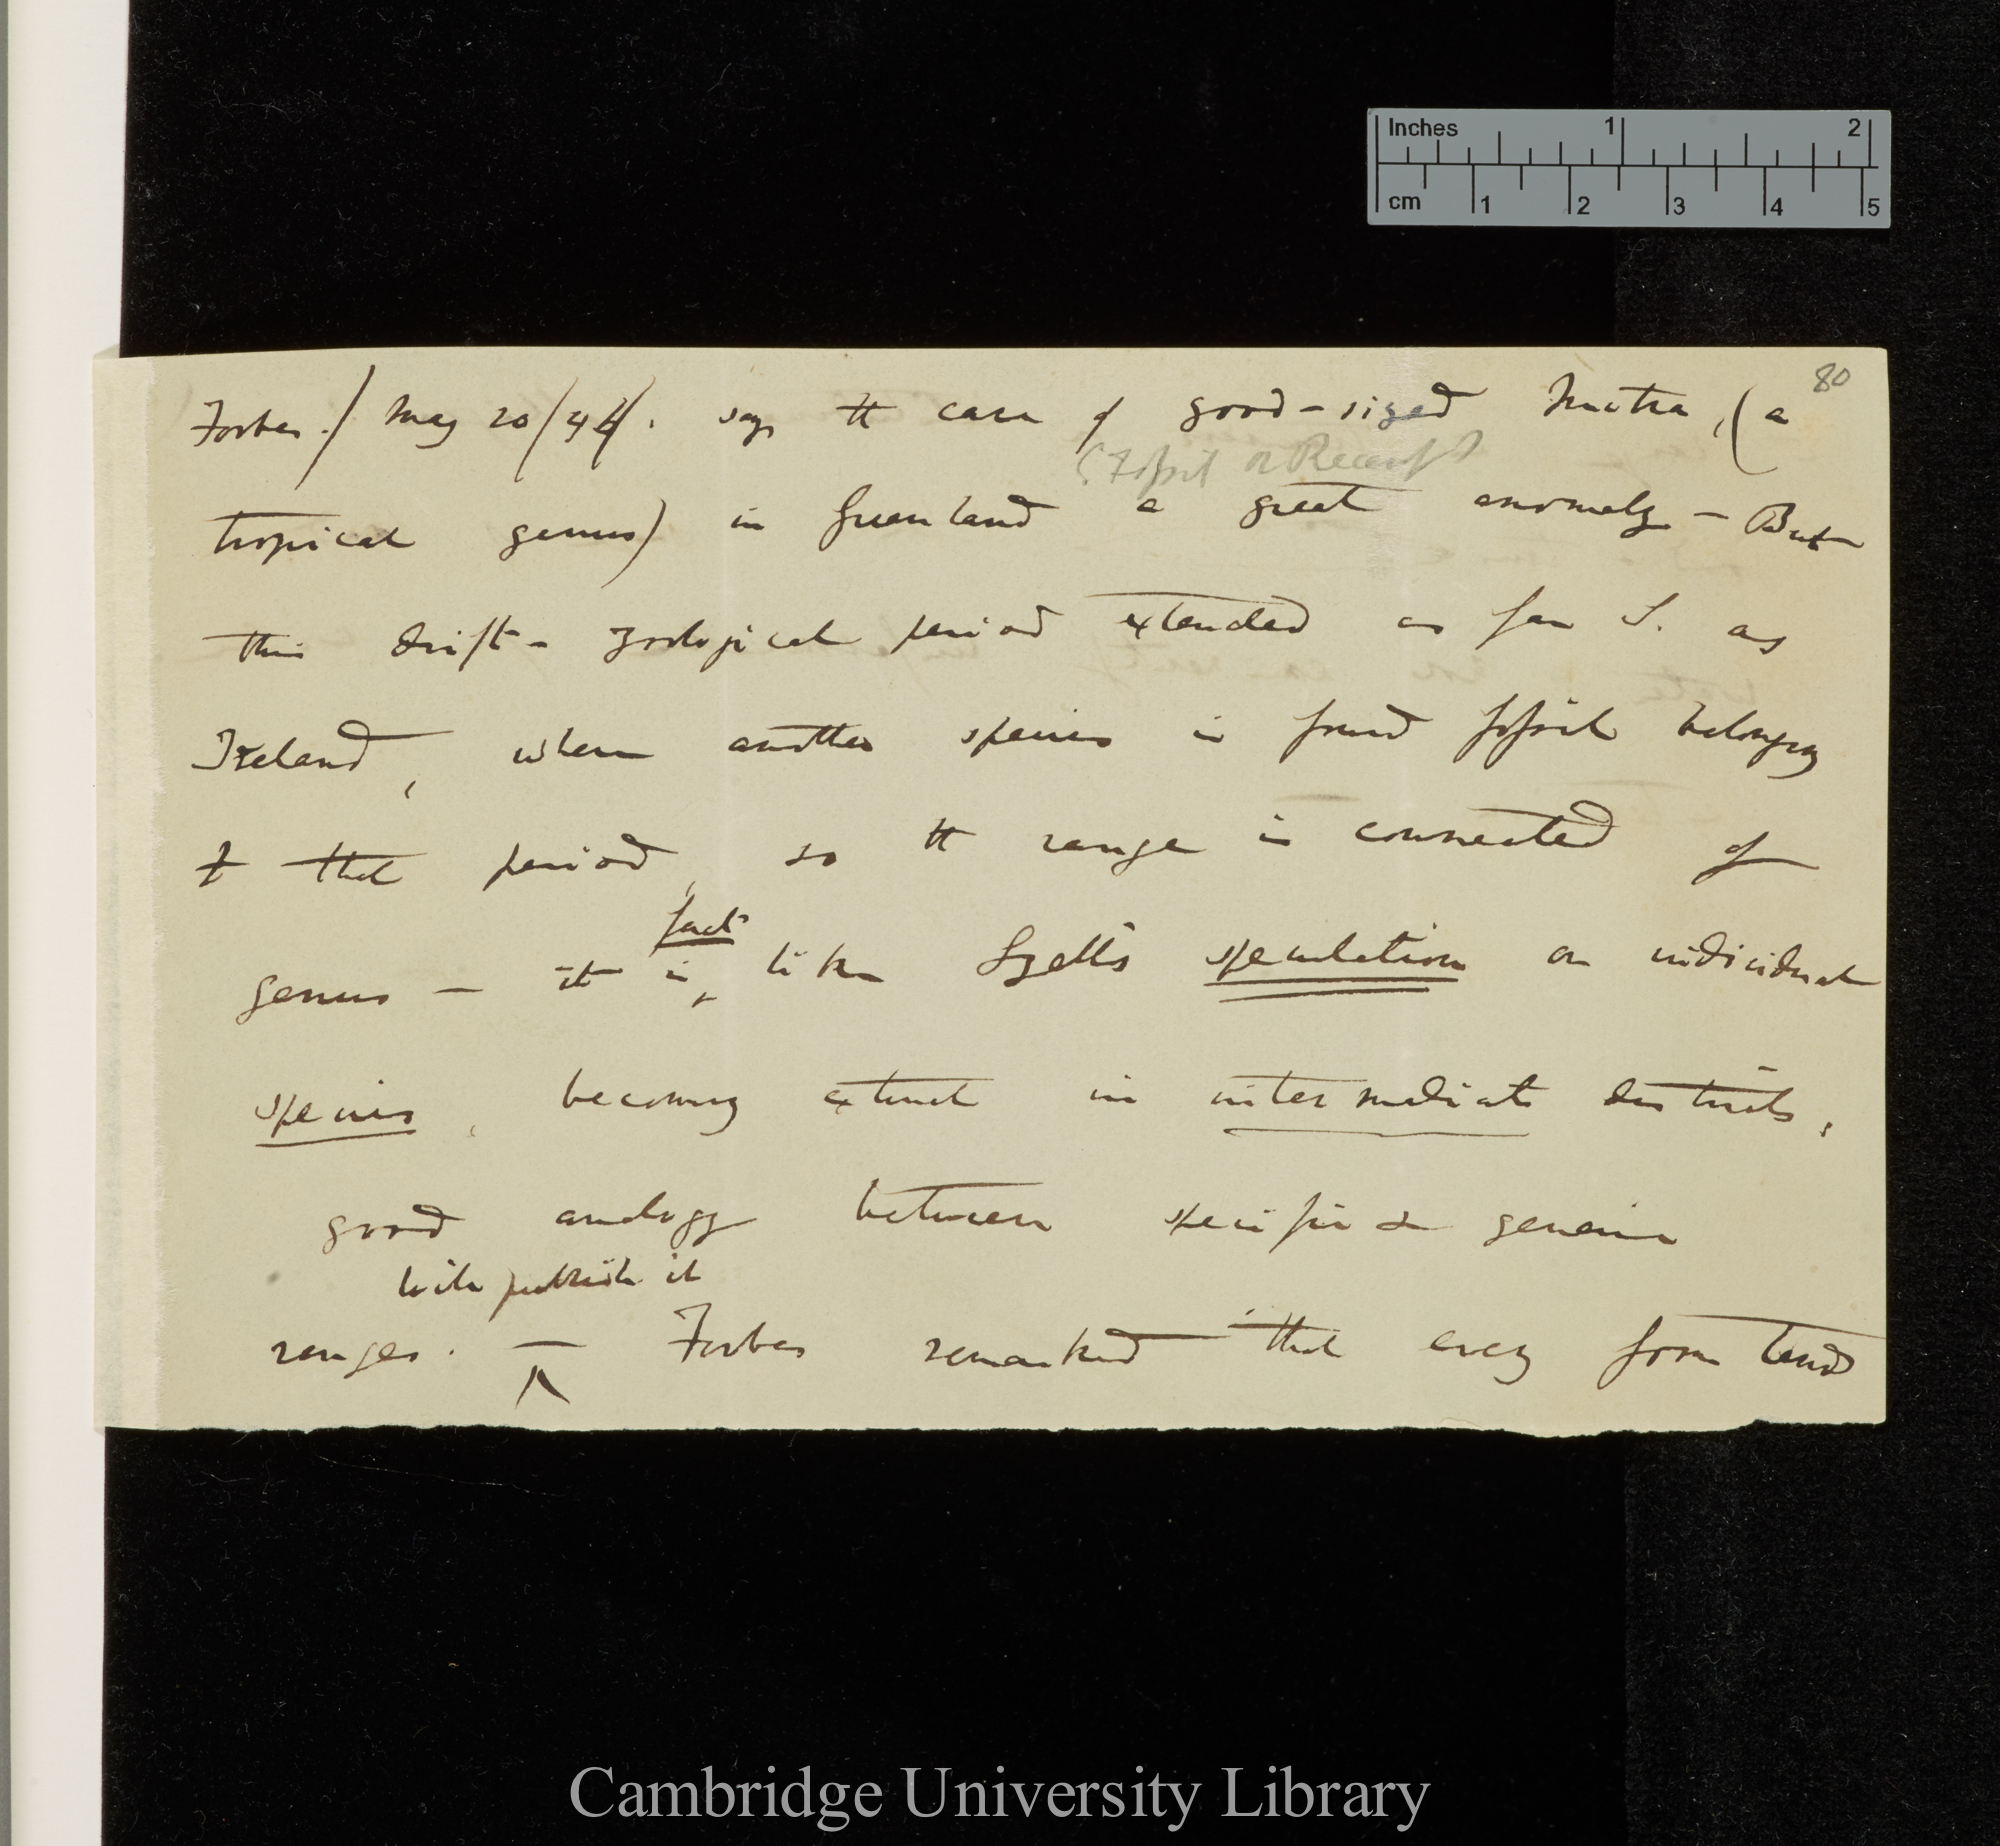 Inches 1 2
cm 1 2 3 4 5
80
Forbes./ May 20/44/. says tt case of good-sized Mitra, (a
(Fossil or Recent)
tropical genus) in Greenland a great anomaly — But
this drift-zoological period extended as far S. as
Ireland, where another species is found fossil belonging
to that period, so tt range is connected of
fact
genus — it is, like Lyell's speculation on individual
species, becoming extinct in intermediate districts,
good analogy between specific & generic
will publish it
ranges. — Forbes remarked that every form tends
Cambridge University Library